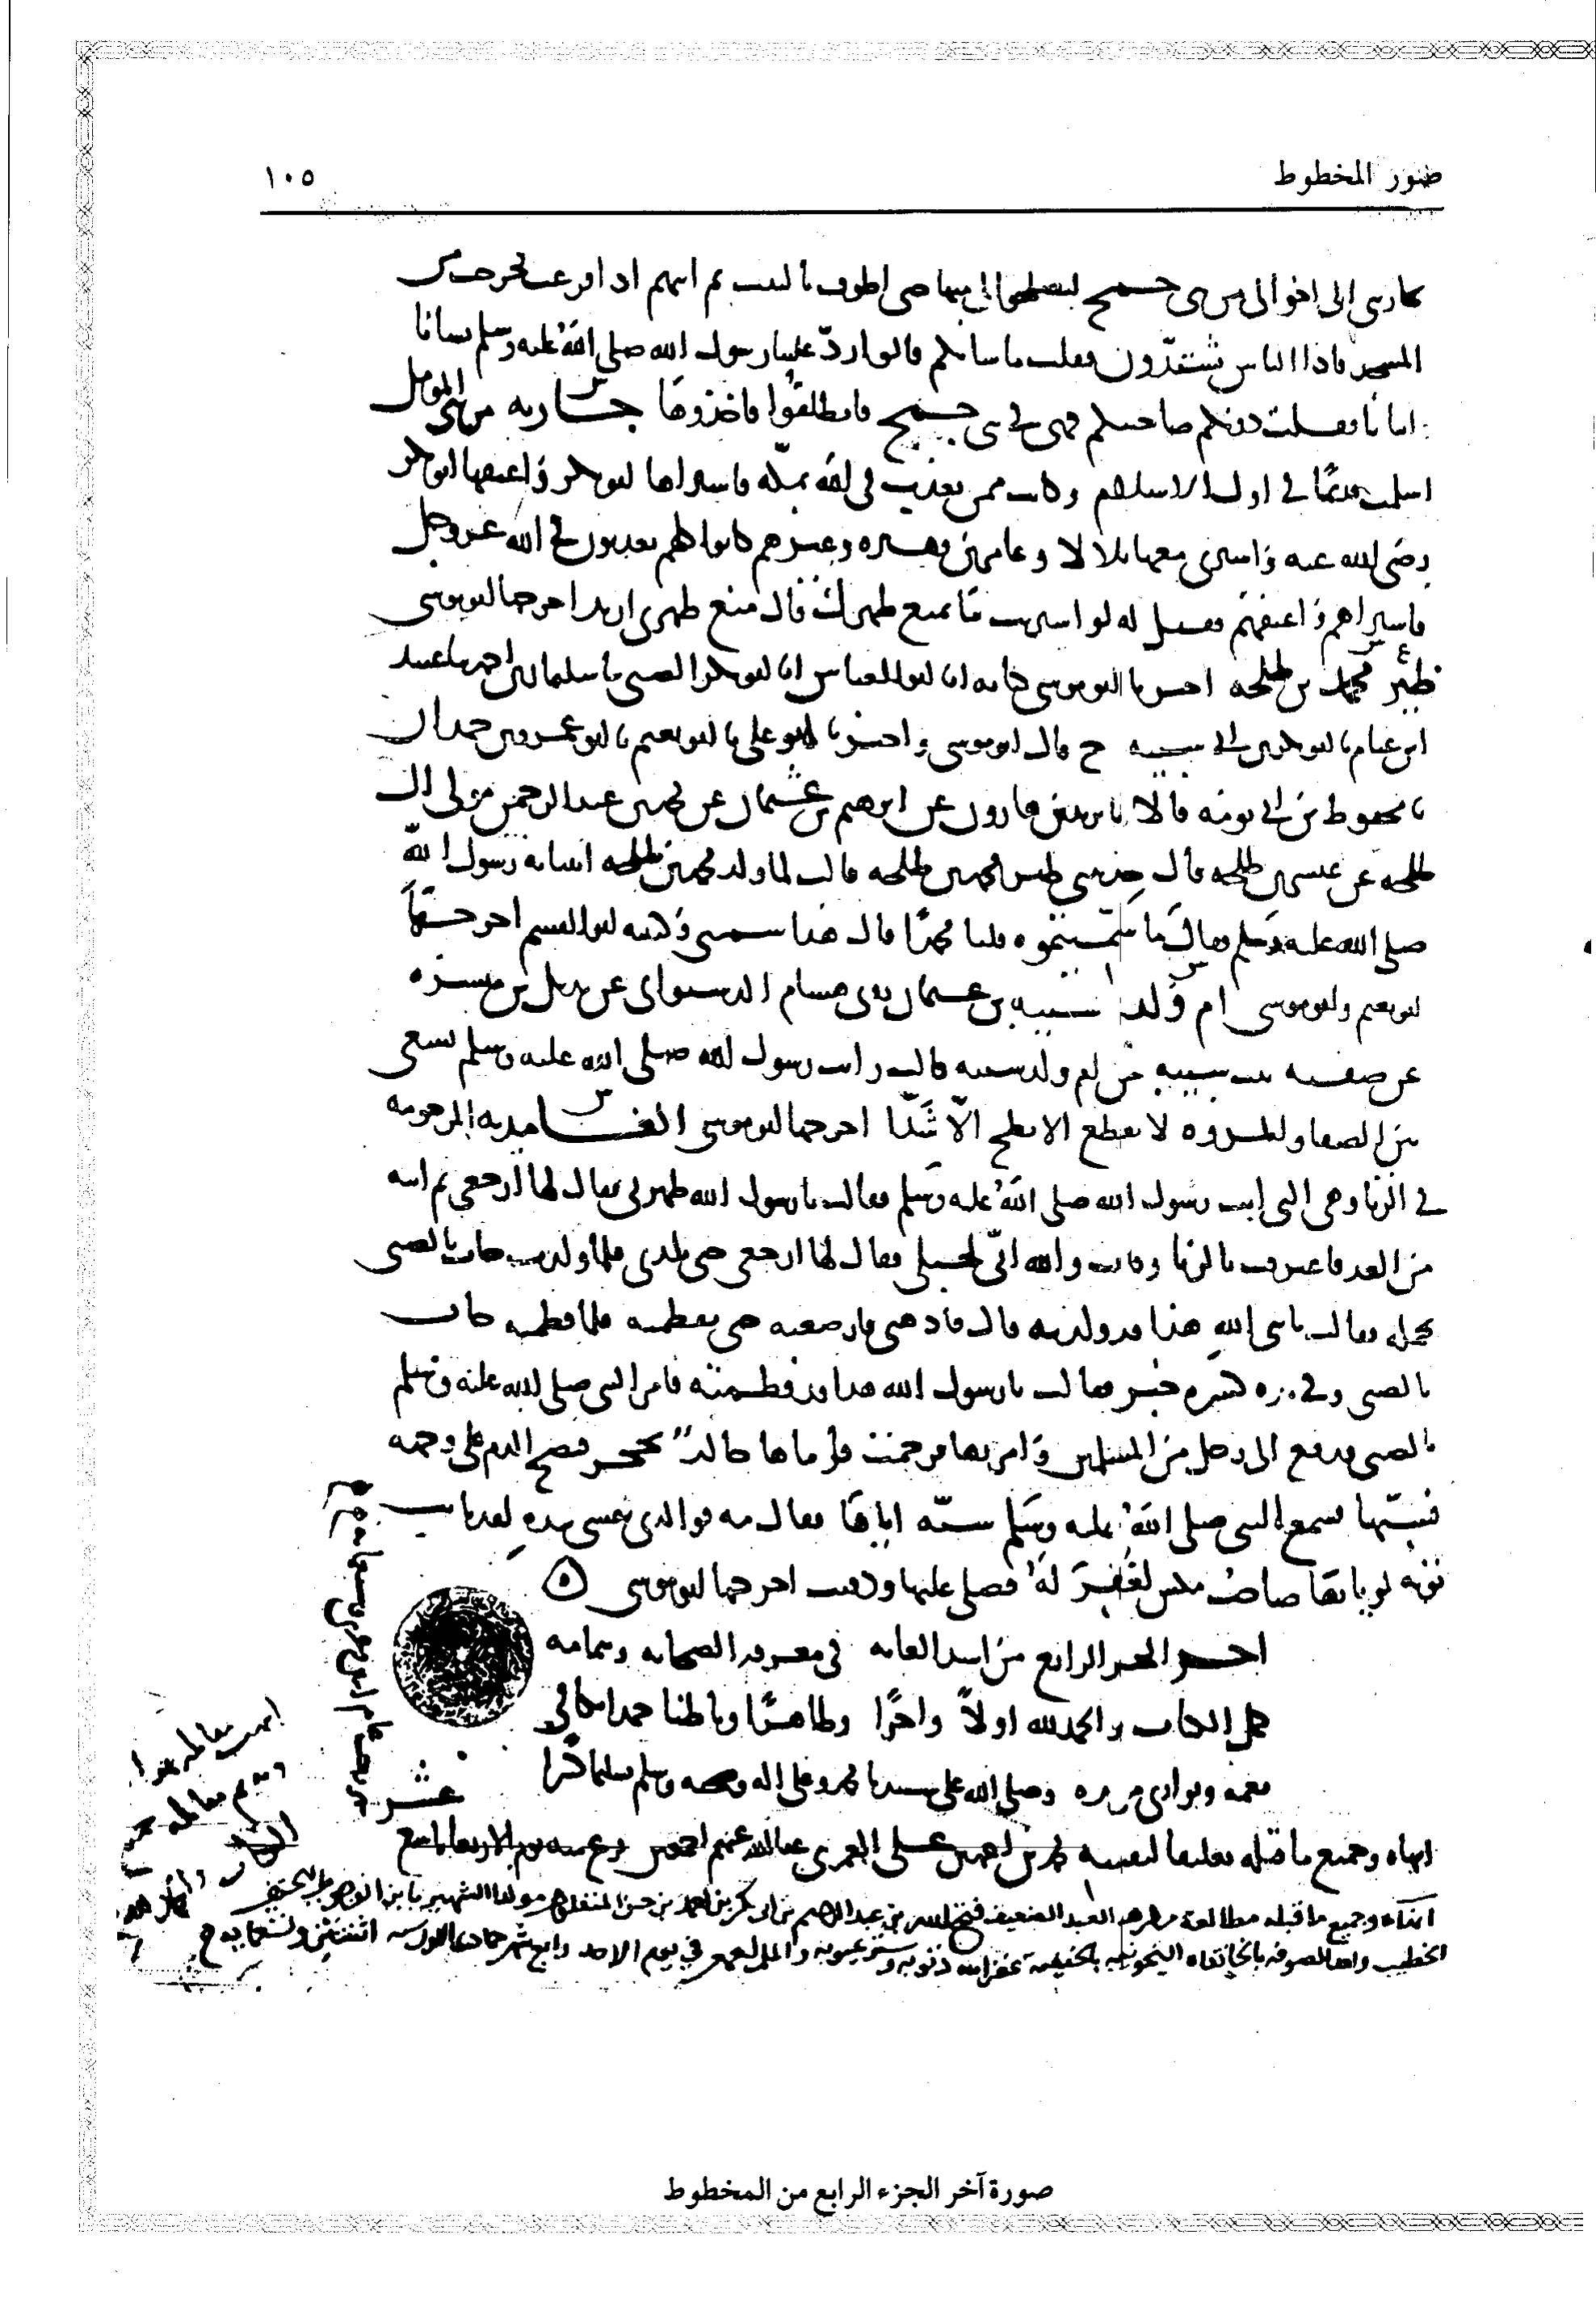 صور المخطوط
١٠٥
جاريتي إلى اخوالي من بني جمح ليصلحوا لي منها حتى اطوف بالبيت ثم اتيهم اذا فرغت فخرجت من
المسجد فاذا الناس يشتدّون فقلت ما شانكم قالوا ردّ علينا رسول الله صلى الله عليه وسلم نسانا
وابنانا فقلت دونكم صاحبتكم فهي في بني جمح فانطلقوا فاخذوها جارية من بني المومل
اسلمت قديمًا في اول الاسلام وكانت ممن يعذب في الله بمكة فاشتراها ابو بكر فاعتقها ابو بكر
رضي الله عنه واشترى معها بلالا وعامر بن فهيره وغيرهم كانوا كلهم يعذبون في الله عز وجل
فاشتراهم فاعتقهم فقيل له لو اشتريت ما يمنع ظهرك قال منع ظهري اريد اخرجها ابو موسى
ظئر محمد بن طلحه اخبرنا ابو موسى كتابه انا ابو العباس انا ابو بكر الضبي نا سليمان بن احمد نا عبيد
ابن غنام نا ابو بكر بن ابي شيبه ح قال ابو موسى واخبرنا ابو علي نا ابو نعيم نا ابو عمرو بن حمدان
نا محفوظ بن ابي توبه قالا نا يزيد بن هارون عن ابرهيم بن عثمان عن محمد بن عبد الرحمن مولى ال
طلحه عن عيسى بن طلحه قال حدثتني ظئر محمد بن طلحه قالت لما ولد محمد بن طلحه اتينا به رسول الله
صلى الله عليه وسلم فقال ما سمّيتموه قلنا محمدًا قال هذا سميي وكنيته ابو القسم اخرجها
ابو نعيم وابو موسى ام ولد شيبه بن عثمان روى هشام الدستواي عن بديل بن ميسره
عن صفيه بنت شيبه عن ام ولد شيبه قالت رايت رسول الله صلى الله عليه وسلم يسعى
بين الصفا والمروه لا يقطع الابطح الاّ شَدّا اخرجها ابو موسى الغامديه المرجومه
في الزنا وهي التي اتت رسول الله صلى الله عليه وسلم فقالت يا رسول الله طهرني فقال لها ارجعي ثم اتته
من الغد فاعترفت بالزنا وقالت والله انّي لحبلى فقال لها ارجعي حتى تلدي فلما ولدت جات بالصبي
تحمله فقالت يا نبي الله هذا قد ولدته قال فاذهبي فارضعيه حتى تفطميه فلما فطمته جات
بالصبي وفي يده كسره خبز فقالت يا رسول الله هذا قد فطمته فامر النبي صلى الله عليه وسلم
بالصبي فدفع الى رجل من المسلمين وامر بها فرجمت فرماها خالد بحجر فنضح الدم على وجهه
فسبّها فسمع النبي صلى الله عليه وسلم سبّه اياها فقال مه فوالذي نفسي بيده لقد تابت
توبه لو تابها صاحب مكس لغُفِرَ له فصلى عليها ودفنت اخرجها ابو موسى
اخر الجز الرابع من اسد الغابه في معرفه الصحابه وبتمامه
كمل الكتاب والحمد لله اولاً واخرًا وظاهرًا وباطنا حمدا يكافي
نعمه ويوافي مزيده وصلى الله على سيدنا محمد وعلى اله وصحبه وسلم تسليما كثيرا
انهاه وجميع ما قبله تعليقا لنفسه محمد بن احمد بن علي العمري عفا الله عنهم اجمعين
انهاه وجميع ما قبله مطالعة العبد الضعيف فتح الله بن عبد الرحيم بن ابي بكر بن احمد بن حسن الشهير بابن الحنفي
الخطيب بالخانقاه غفر الله ذنوبه وستر عيوبه في يوم الاحد رابع شهر جمادى اثنتين
عشر
صورة آخر الجزء الرابع من المخطوط